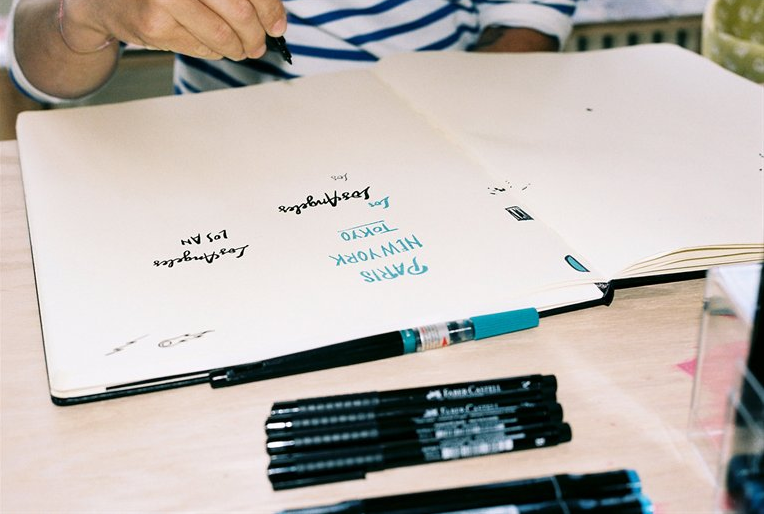 PARIS
NEW YORK
TOKYO
Los
Los Angeles
los
Los Angeles
LOS AN
FABER-CASTELL
FABER-CASTELL